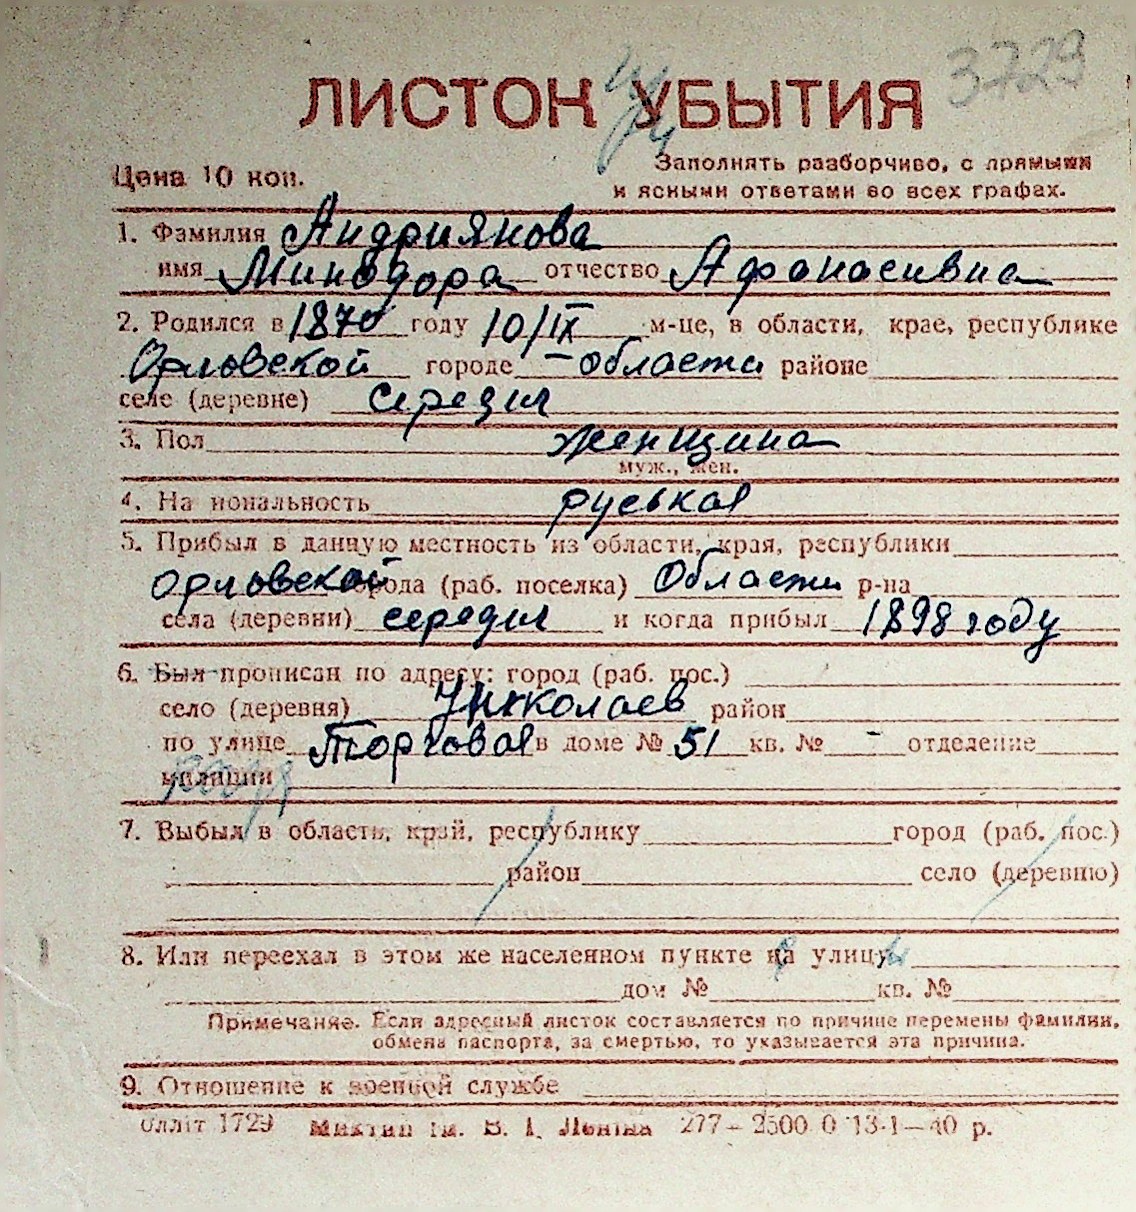 3729
ЛИСТОК УБЫТИЯ
Цена 10 коп.
Заполнять разборчиво, с прямыми
и ясными ответами во всех графах.
1. Фамилия Андриянова
имя Минодора отчество Афанасивна
2. Родился в 1870 году 10/IX м-це, в области, крае, республике
Орловской городе – области районе
селе (деревне) середил
3. Пол женщина
муж., жен.
4. Национальность руськая
5. Прибыл в данную местность из области, края, республики
орловской города (раб. поселка) Области р-на
села (деревни) середил и когда прибыл 1898 году
6. Был прописан по адресу: город (раб. пос.)
село (деревня) Николаев район
по улице Торговая в доме № 51 кв. № - отделение
милиции
7. Выбыл в область, край, республику город (раб. пос.)
район село (деревню)
8. Или переехал в этом же населенном пункте на улицу
дом № кв. №
Примечание. Если адресный листок составляется по причине перемены фамилии,
обмена паспорта, за смертью, то указывается эта причина.
9. Отношение к военной службе
Оллiт 1729 iм. В. I. Ленiна 277—2500 0 13-1—40 р.